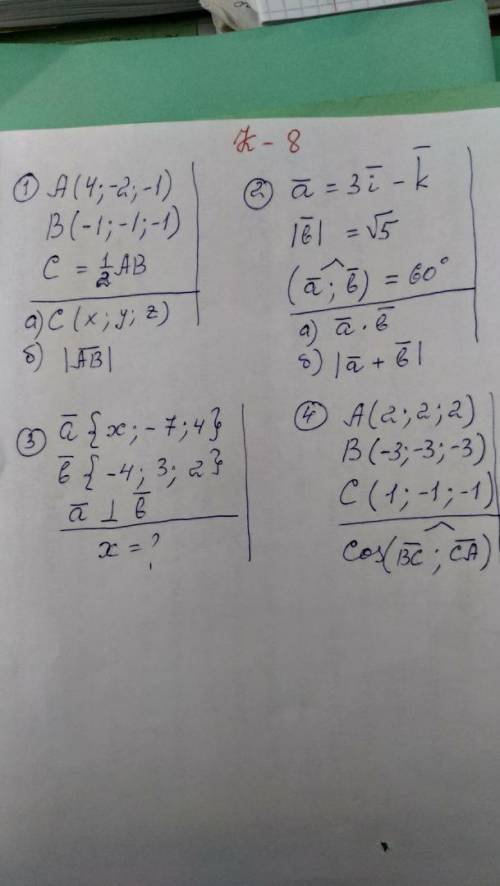 К - 8
① A(4; -2; -1)
B(-1; -1; -1)
C = ½AB
а) C(x; y; z)
б) |A̅B̅|
② a̅ = 3i̅ - k̅
|b̅| = √5
(a̅; b̅) = 60°
а) a̅ · b̅
б) |a̅ + b̅|
③ a̅ {x; -7; 4}
b̅ {-4; 3; 2}
a̅ ⊥ b̅
x = ?
④ A(2; 2; 2)
B(-3; -3; -3)
C(1; -1; -1)
Cos(B̅C̅; C̅A̅)